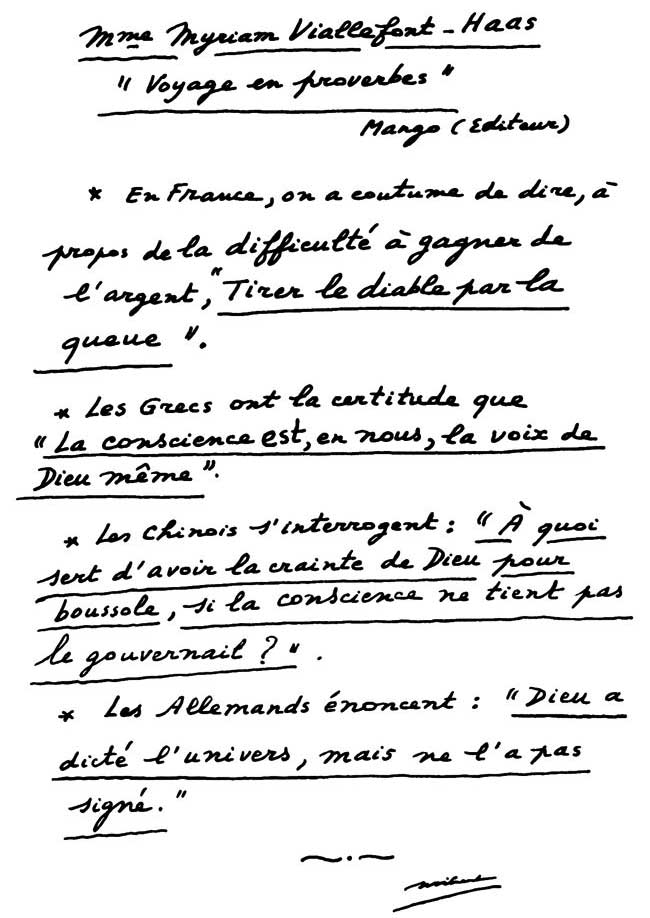 Mme Myriam Viallefont-Haas
"Voyage en proverbes"
Mango (Editeur)
* En France, on a coutume de dire, à
propos de la difficulté à gagner de
l'argent, "Tirer le diable par la
queue".
* Les Grecs ont la certitude que
"La conscience est, en nous, la voix de
Dieu même".
* Les Chinois s'interrogent : "À quoi
sert d'avoir la crainte de Dieu pour
boussole, si la conscience ne tient pas
le gouvernail ?".
* Les Allemands énoncent : "Dieu a
dicté l'univers, mais ne l'a pas
signé."